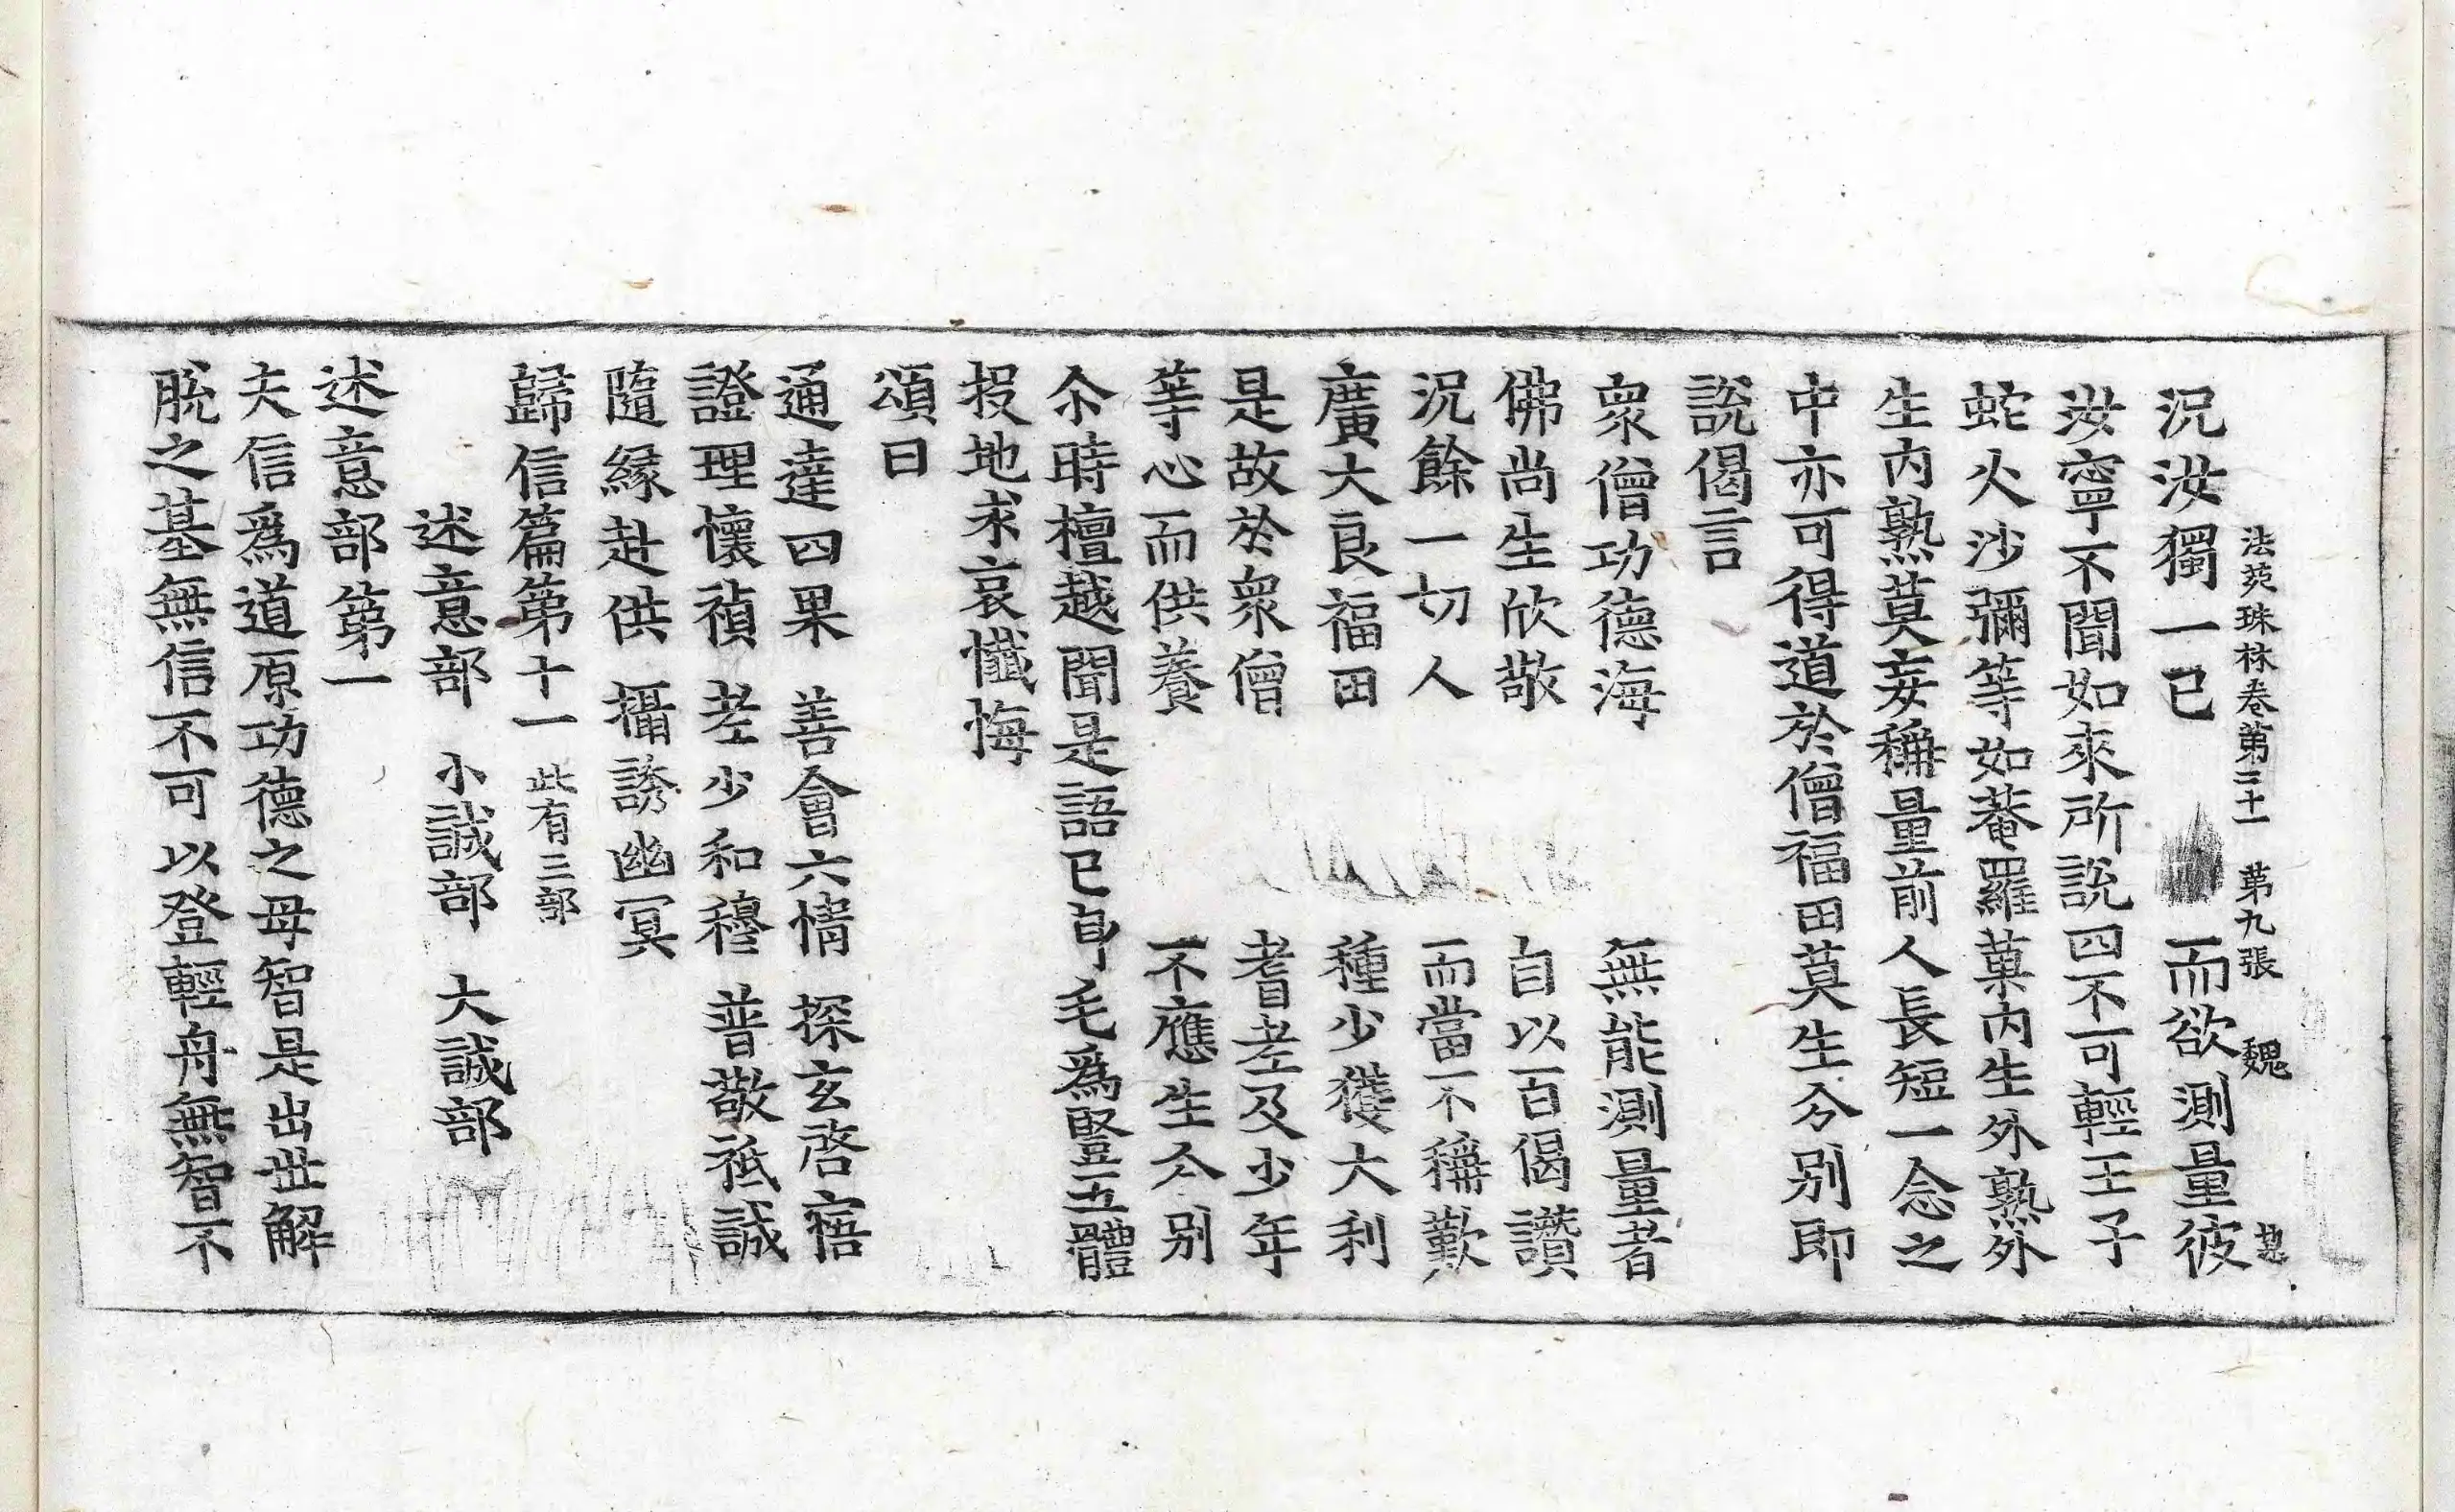 法苑珠林卷第二十一 第九張 魏
況汝獨一己 而欲測量彼
汝寧不聞如來所說四不可輕王子
蛇火沙彌等如菴羅菓內生外熟外
生內熟莫妄稱量前人長短一念之
中亦可得道於僧福田莫生分別即
說偈言
衆僧功德海 無能測量者
佛尚生欣敬 自以百偈讚
況餘一切人 而當不稱歎
廣大良福田 種少獲大利
是故於衆僧 耆老及少年
等心而供養 不應生分別
尒時檀越聞是語已身毛爲豎五體
投地求哀懺悔
頌曰
通達四果 善會六情 探玄啓寤
證理懷禎 老少和穆 普敬祇誠
隨緣赴供 攝誘幽冥
歸信篇第十一 此有三部
述意部 小誠部 大誠部
述意部第一
夫信爲道原功德之母智是出世解
脫之基無信不可以登輕舟無智不